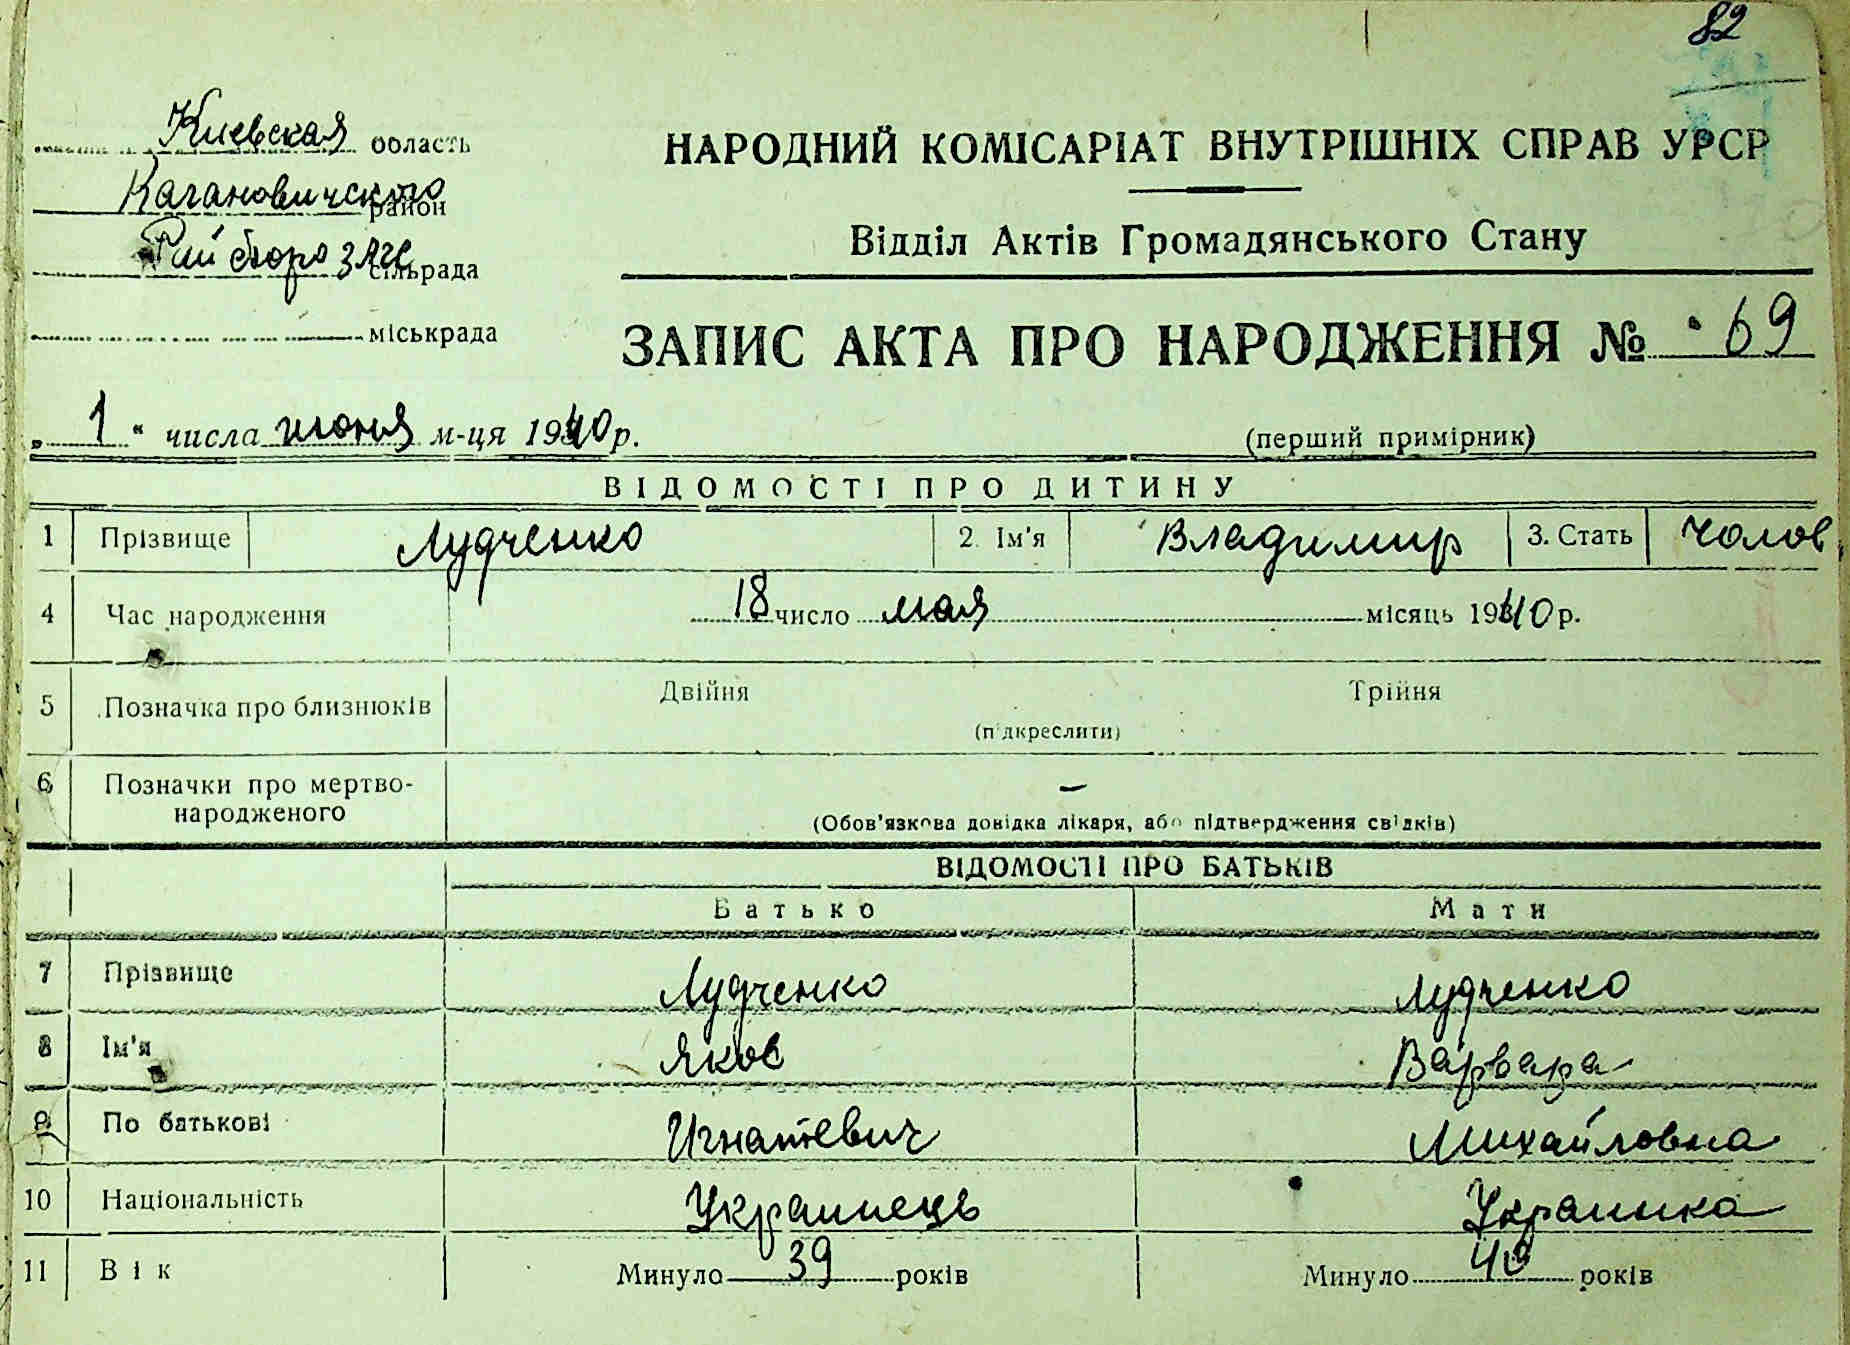 82
Киевская область
Кагановичского район
Рай бюро ЗАГС сільрада
міськрада
НАРОДНИЙ КОМІСАРІАТ ВНУТРІШНІХ СПРАВ УРСР
Відділ Актів Громадянського Стану
ЗАПИС АКТА ПРО НАРОДЖЕННЯ № 69
„1“ числа июня м-ця 1940 р.
(перший примірник)
ВІДОМОСТІ ПРО ДИТИНУ
1 Прізвище Лудченко 2. Ім'я Владимир 3. Стать Чолов.
4 Час народження 18 число мая місяць 1940 р.
5 Позначка про близнюків Двійня Трійня
(підкреслити)
6 Позначки про мертво-
народженого –
(Обов'язкова довідка лікаря, або підтвердження свідків)
ВІДОМОСТІ ПРО БАТЬКІВ
Батько Мати
7 Прізвище Лудченко Лудченко
8 Ім'я Яков Варвара
9 По батькові Игнатевич Михайловна
10 Національність Украинець Украинка
11 Вік Минуло 39 років Минуло 40 років